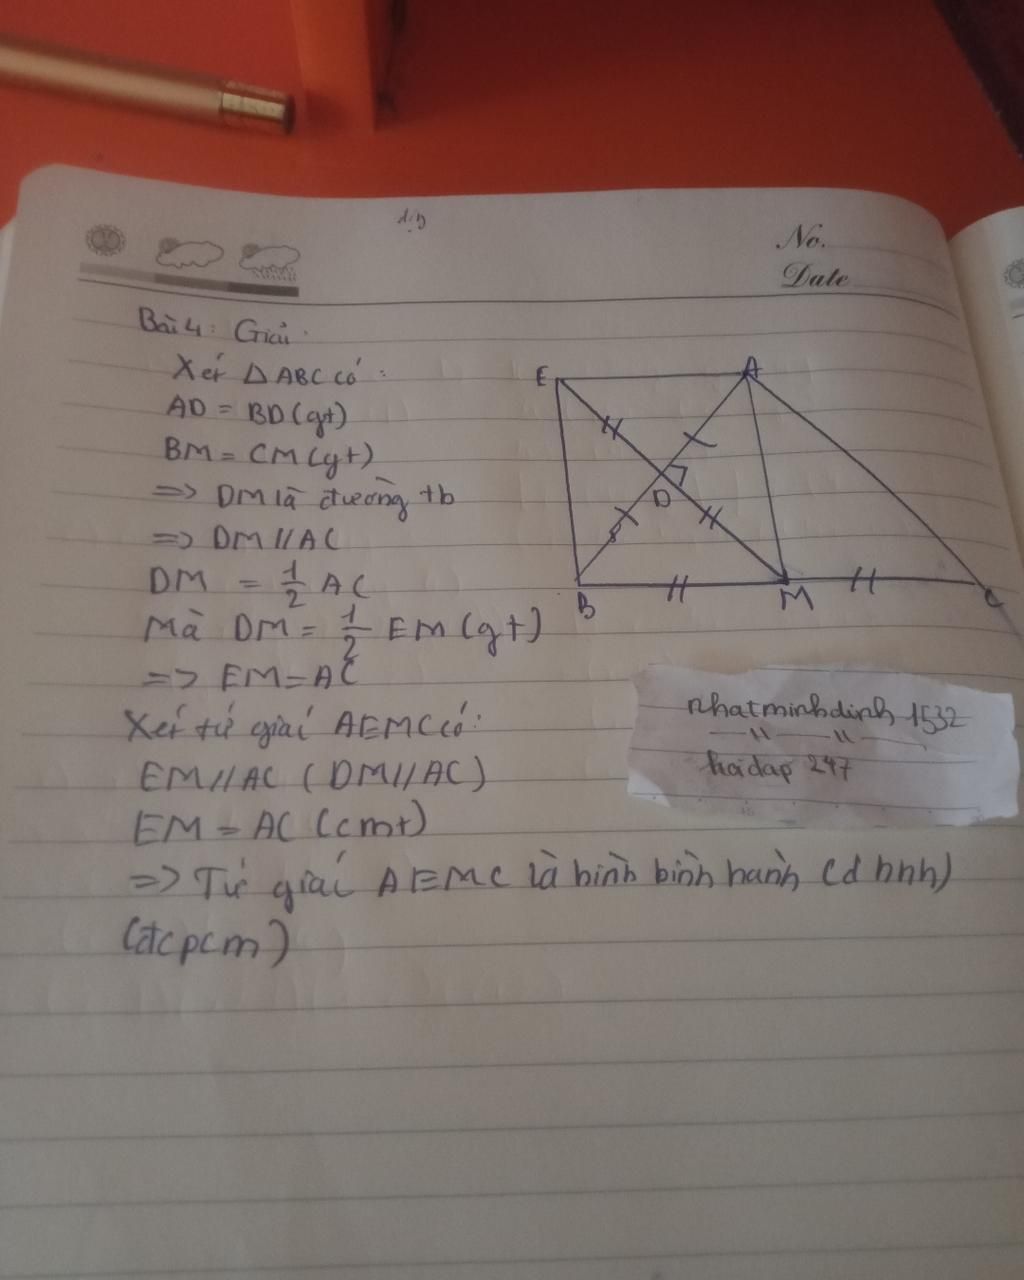 No.
Date
Bài 4: Giải.
Xét △ABC có:
AD = BD (gt)
BM = CM (gt)
=> DM là đường tb
=> DM // AC
DM = 1/2 AC
Mà DM = 1/2 EM (gt)
=> EM = AC
Xét tứ giác AEMC có:
EM // AC (DM // AC)
EM = AC (cmt)
=> Tứ giác AEMC là hình bình hành (d hnh)
(đcpcm)
E A
D
B M C
nhatminhdinh 1532
hoidap 247